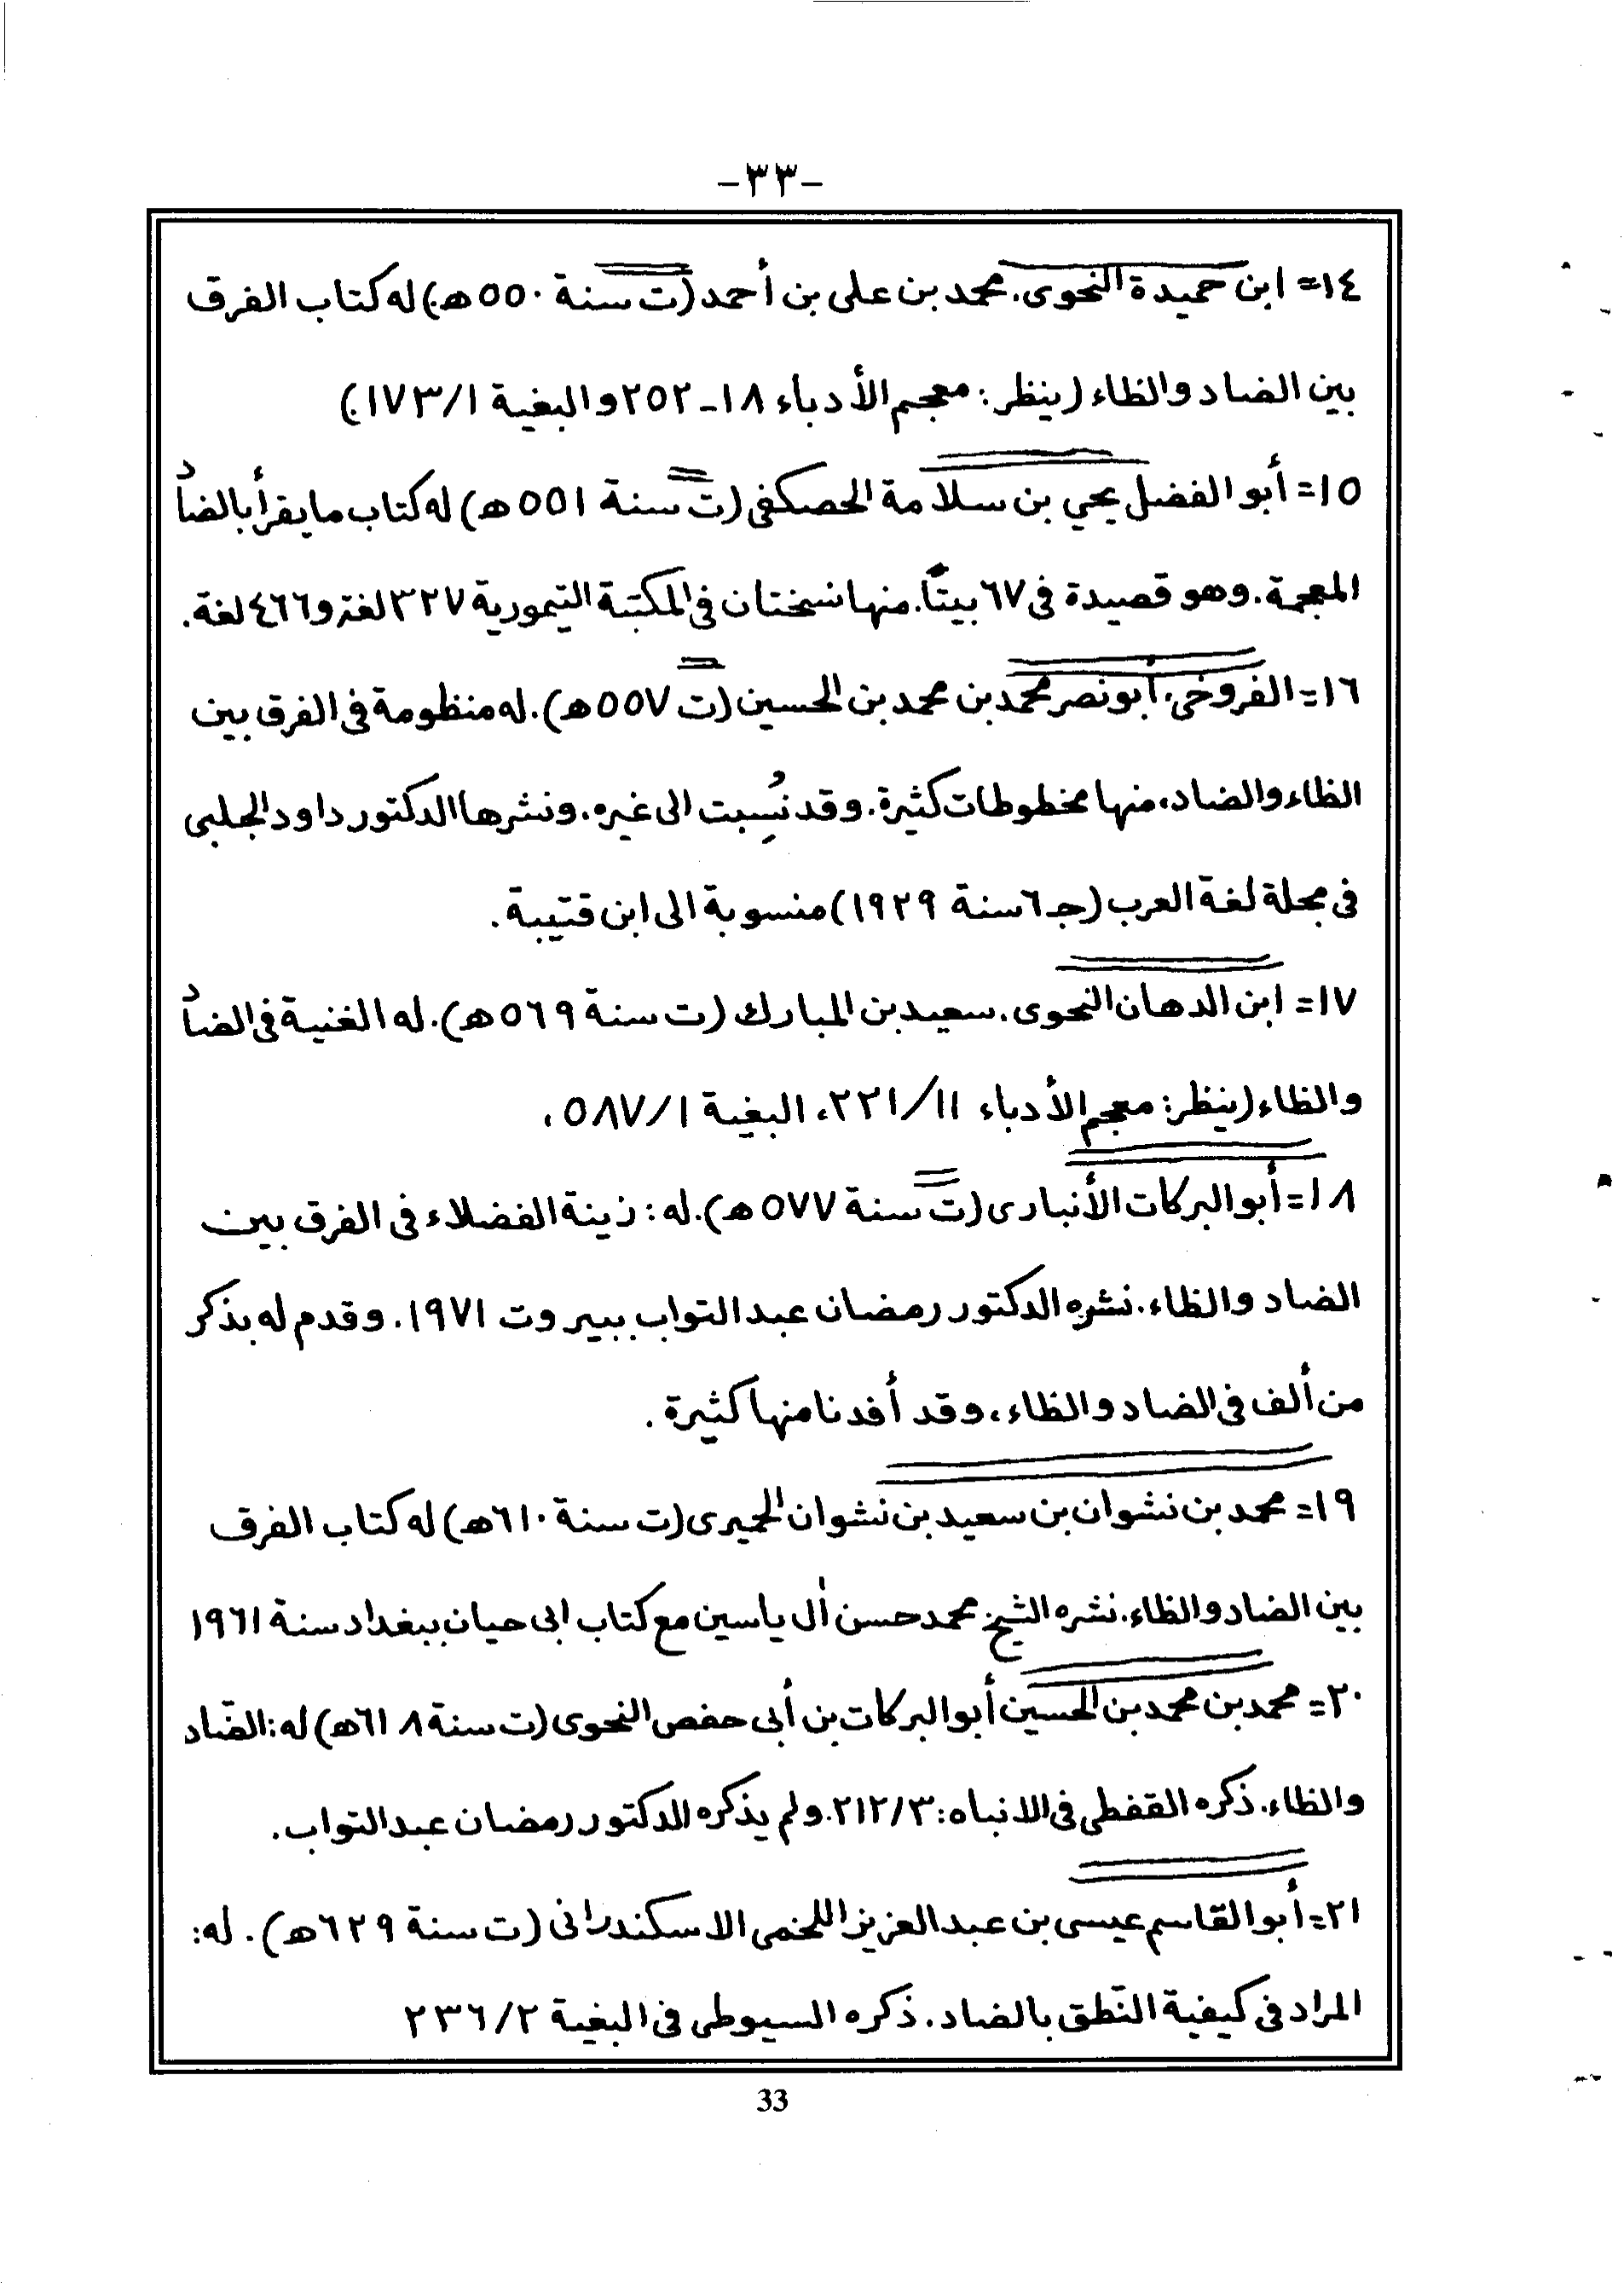 -٣٣-
١٤= ابن حميدة النحوى. محمد بن على بن أحمد (ت سنة ٥٥٠ هـ.) له كتاب الفرق
بين الضاد والظاء (ينظر: معجم الأدباء ١٨-٢٥٢ والبغية ١٧٣/١.)
١٥= أبو الفضل يحي بن سلامة الحصكفى (ت سنة ٥٥١ هـ) له كتاب ما يقرأ بالضاد
المعجمة. وهو قصيدة فى ٦٧ بيتًا. منها نسختان فى المكتبة التيمورية ٣٢٧ لغة و ٤٦٦ لغة.
١٦= الفروخى، أبو نصر محمد بن محمد بن الحسين (ت ٥٥٧ هـ). له منظومة فى الفرق بين
الظاء والضاد، منها مخطوطات كثيرة. وقد نُسِبت الى غيره. ونشرها الدكتور داود الجلبى
فى مجلة لغة العرب (جـ ٦ سنة ١٩٢٩) منسوبة الى ابن قتيبة.
١٧= ابن الدهان النحوى. سعيد بن المبارك (ت سنة ٥٦٩ هـ). له الغنية فى الضاد
والظاء (ينظر: معجم الأدباء ٢٢١/١١، البغية ٥٨٧/١،
١٨= أبو البركات الأنبارى (ت سنة ٥٧٧ هـ). له: زينة الفضلاء فى الفرق بين
الضاد والظاء. نشره الدكتور رمضان عبد التواب ببيروت ١٩٧١. وقدم له بذكر
من ألف فى الضاد والظاء، وقد أفدنا منها كثيرة.
١٩= محمد بن نشوان بن سعيد بن نشوان الحميرى (ت سنة ٦١٠ هـ) له كتاب الفرق
بين الضاد والظاء. نشره الشيخ محمد حسن اٰل ياسين مع كتاب ابى حيان ببغداد سنة ١٩٦١
٢٠= محمد بن محمد بن الحسين أبو البركات بن أبى حفص النحوى (ت سنة ٦١٨ هـ) له: الضاد
والظاء. ذكره القفطى فى الانباه: ٢١٢/٣. ولم يذكره الدكتور رمضان عبد التواب.
٢١= أبو القاسم عيسى بن عبد العزيز اللخمى الاسكندرانى (ت سنة ٦٢٩ هـ). له:
المراد فى كيفية النطق بالضاد. ذكره السيوطى فى البغية ٢٣٦/٢
33